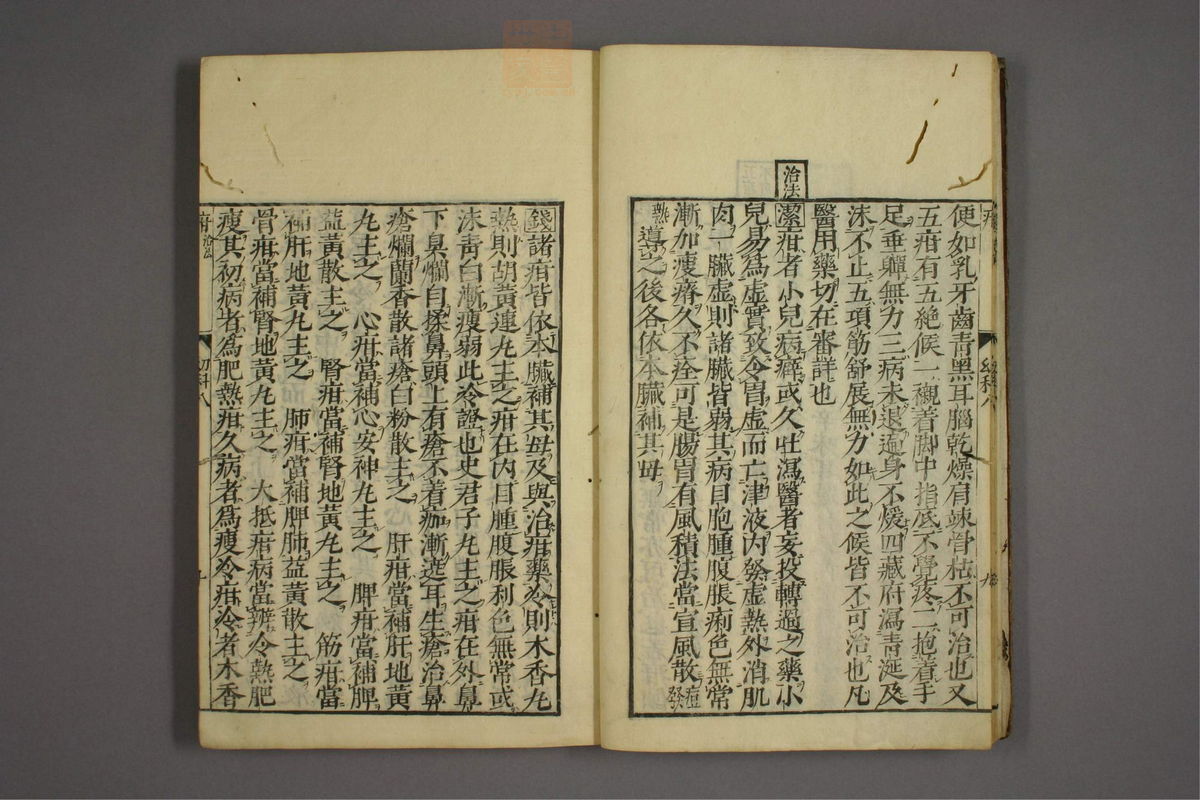 便如乳牙齒青黑耳腦乾燥肩竦骨枯不可治也又
五疳有五絕候一襯着脚中指底不覺疼二抱着手
足垂嚲無力三病未退遍身不煖四藏府瀉青涎及
沫不止五項筋舒展無力如此之候皆不可治也凡
醫用藥切在審詳也
治法
潔疳者小兒病癖或久吐瀉醫者妄投轉過之藥小
兒易為虛實致令胃虛而亡津液內發虛熱外消肌
肉一臟虛則諸臟皆弱其病目胞腫腹脹痢色無常
漸加瘦瘠久不痊可是腸胃有風積法當宣風散
導之後各依本臟補其母
錢諸疳皆依本臟補其母及與治疳藥冷則木香丸
熱則胡黃連丸主之疳在內目腫腹脹利色無常或
沫青白漸瘦弱此冷證也史君子丸主之疳在外鼻
下臭爛自揉鼻頭上有瘡不着痂漸遶耳生瘡治鼻
瘡爛蘭香散諸瘡白粉散主之 肝疳當補肝地黃
丸主之 心疳當補心安神丸主之 脾疳當補脾
益黃散主之 腎疳當補腎地黃丸主之 筋疳當
補肝地黃丸主之 肺疳當補脾肺益黃散主之
骨疳當補腎地黃丸主之 大抵疳病當辨冷熱肥
瘦其初病者為肥熱疳久病者為瘦冷疳冷者木香
疳 治法
幼科八
九